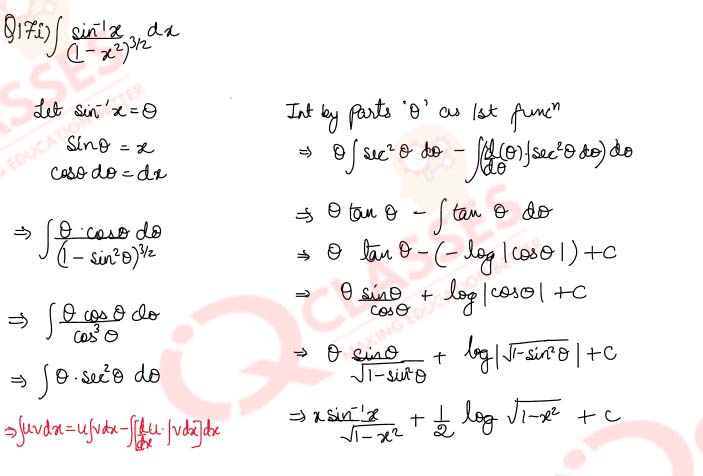 Q17i) ∫ sin⁻¹x / (1 - x²)^3/2 dx
Let sin⁻¹x = θ
sinθ = x
cosθ dθ = dx
⇒ ∫ θ·cosθ dθ / (1 - sin²θ)^3/2
⇒ ∫ θ cosθ dθ / cos³θ
⇒ ∫ θ·sec²θ dθ
⇒ ∫uvdx = u∫vdx - ∫[d/dx u·∫vdx]dx
Int by parts 'θ' as 1st funcⁿ
⇒ θ∫sec²θ dθ - ∫(d/dθ(θ)∫sec²θ dθ)dθ
⇒ θ tanθ - ∫tan θ dθ
⇒ θ tanθ - (- log|cosθ|) + C
⇒ θ sinθ/cosθ + log|cosθ| + C
⇒ θ sinθ/√1-sin²θ + log|√1-sin²θ| + C
⇒ x sin⁻¹x/√1-x² + 1/2 log √1-x² + C
IQ CLASSES
MAKING EDUCATION BETTER